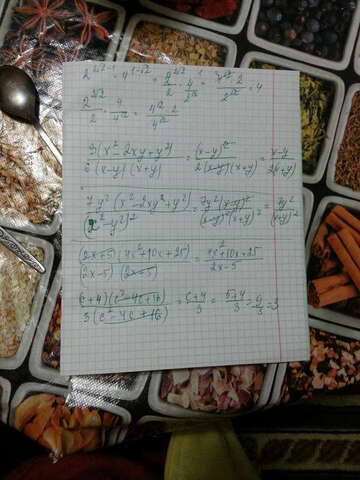 2^{2√2-1} · 4^{1-√2} = 2^{2√2}/2 · 4^1/4^{√2} = 4^{√2} · 2/2^{2√2} = 4
2^{2√2}/2 · 4/4^{√2} = 4^{√2} · 2/4^{√2}
3(x²-2xy+y²)/6(x-y)(x+y) = (x-y)²/2(x-y)(x+y) = x-y/2(x+y)
7y²(x²-2xy+y²)/(x²-y²)² = 7y²(x-y)²/(x-y)²(x+y)² = 7y²/(x+y)²
(2x+5)(4x²+10x+25)/(2x-5)(2x+5) = 4x²+10x+25/2x-5
(c+4)(c²-4c+16)/3(c²-4c+16) = c+4/3 = 5+4/3 = 9/3 = 3